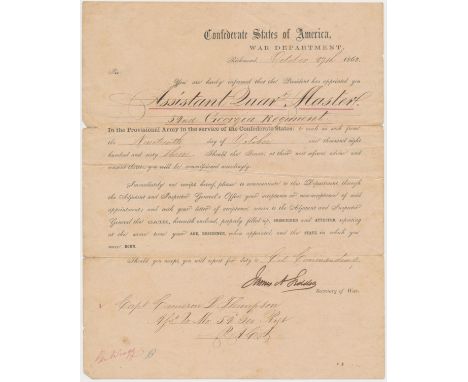 Confederate States of America,
WAR DEPARTMENT,
Richmond, October 27th, 1863.
Sir:
You are hereby informed that the President has appointed you
Assistant Quar. Master.
Georgia Regiment
In the Provisional Army in the service of the Confederate States: to rank as such from
the day of October one thousand eight
hundred and sixty three. Should the Senate, at their next advise and
consent thereto, you will be commissioned accordingly.
Immediately on receipt hereof, please to communicate to this Department, through
the Adjutant and Inspector General's Office, your acceptance or non-acceptance of said
appointment; and with your letter of acceptance, return to the Adjutant and Inspector
General the OATH, herewith enclosed, properly filled up, SUBSCRIBED and ATTESTED, reporting
at the same time your AGE, RESIDENCE, when appointed, and the STATE in which you
were BORN.
Should you accept, you will report for duty to Col. Commanding
Secretary of War.
Capt. Cameron D. Thompson